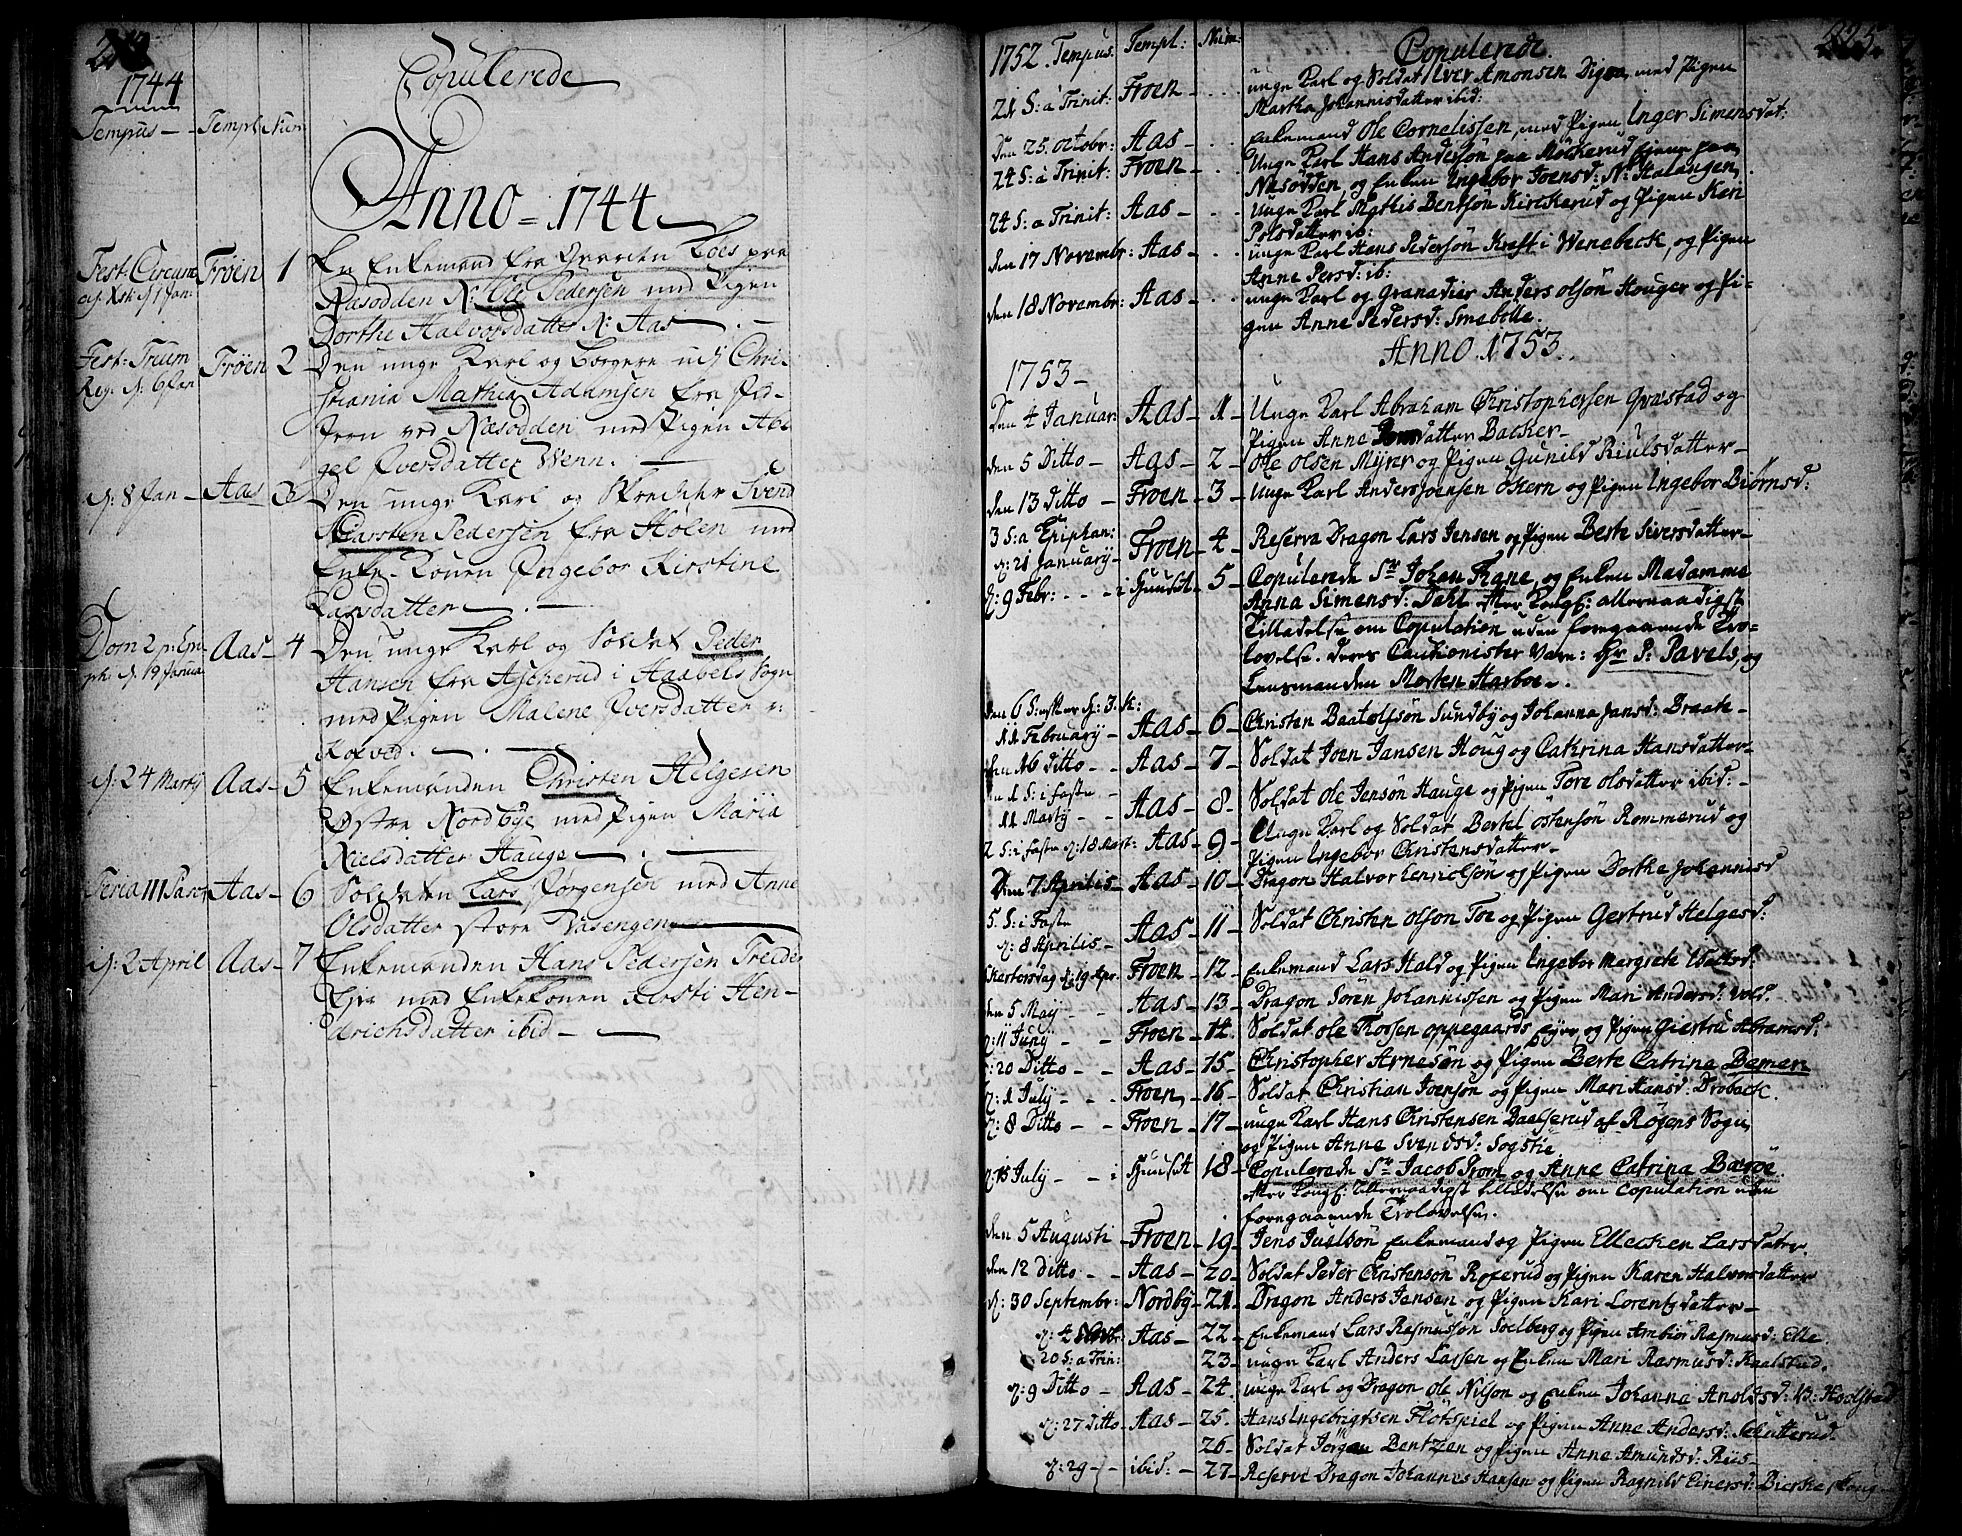 1744
Copulerede
Tempus — Templ: Num:
Anno = 1744
Fest: Circumc Frøen 1 En Enkemand fra Gaarden Toes paa
Næsodden N: Ole Pedersen med Pigen
Dorthe Halvorsdatter N: Aas
Fest: Trium Frøen 2 Den unge Karl og Borgere udj Chri-
Reg: d: 6 Jan stiania Mathia Adamsen fra
ved Næsodden med Pigen Abi-
gel Iversdatter Wenn.
d: 8 Jan — Aas 3 Den unge Karl og Skredder Svend
Carsten Pedersen fra Holen med
Enke-Konen Ingebor Kirstine
Larsdatter
Dom 2 p: Epi- Aas — 4 Den unge Karl og Soldat Peder
ph: d: 19 Janua Hansen fra Ascherud i Haabøls Sogn
med Pigen Malene Iversdatter
d: 24 Martij Aas — 5 Enkemanden Christen Helgesen
Østre Nordbye med Pigen Maria
Nielsdatter Hauge
Feria III Pasc: Aas — 6 Soldaten Lars Jørgensen med Anne
Olsdatter store Vasengen
d: 2 April Aas — 7 Enkemanden Hans Pedersen
med Enkekonen Kirsti Hen-
drichsdatter ibid
1752. Tempus. Templ: Num: Copulerede. 225.
21 S: a Trinit: Froen — unge Karl og Soldat Iver Amonsen Digra, med Pigen
Martha Johannisdatter ibid:
Den 25. octobr: Aas — Enkemand Ole Cornelissen, med Pigen Inger Simensdat:
24 S: a Trinit: Froen — Unge Karl Hans Andersøn paa Møckerud paa
Næsodden, og Enken Ingebor Joensd: N: Halangen,
24 S: a Trinit: Aas — Unge Karl Mathis Bentsøn Kirckerud og Pigen Kari
Polsdatter ib:
den 17 Novembr: Aas — unge Karl Hans Pedersøn Kraft i Wenebeck, og Pigen
Anne Persd: ib:
den 18 Novembr: Aas — unge Karl og Granadier Anders olsøn Houger og Pi-
gen Anne Pedersd: Smebølle.
1753 — Anno 1753.
Den 4 Januar: Aas — 1 — Unge Karl Abraham Christophersen Græstad og
Pigen Anne datter Backer —
den 5 Ditto — Aas — 2 — Ole Olsen Myrer og Pigen Gunild Riulsdatter —
den 13 Ditto — Froen — 3 — Unge Karl Anders Joensen Østern og Pigen Ingebor Biørnsd:
3 S: a Epiphan:
d: 21 January — Froen — 4 — Reserva Dragon Lars Jensen og Pigen Berte Siversdatter —
d: 9 Febr: - - - i Huuset — 5 — Copulerede Sr Johan Frane, og Enken Madamme
Anna Simensd: Dahl efter Kongl: allernaadigst
Tilladelse om Copulation uden foregaaende Tro-
lovelse. deres Cautionister vare: Hr P: Pavels, og
Lensmanden Morten Harboe.
den 6 S: efter H: 3. K:
11 February — Aas — 6 — Christen Baatelssøn Sundby og Johanna Jansd: Braate —
den 16 ditto — Aas — 7 — Soldat Joen Jansen Houg og Cathrina Hansdatter —
den 1 S: i faste
11 Marty — Aas — 8 — Soldat Ole Jensøn Hauge og Pigen Tore olsdatter ibid: —
2 S: i Faste d: 18 Mart: Aas — 9 — Unge Karl og Soldat Bertel Østensøn Rommerud og
Pigen Ingebor Christensdatter —
Den 7 Aprilis — Aas — 10 — Dragon Halvor og Pigen Dorthe Johannisd
5. S: i Fast
d: 8 Aprilis — Aas — 11 — Soldat Christen olsøn Toe og Pigen Gertrud Helgesd:
Skiertorsdag d: 19 Apr: Froen — 12 — Enkemand Lars Hald og Pigen Ingebor Margrete
den 5 May — Aas — 13 — Dragon Sören Johannissen og Pigen Mari Andersd: Vold.
d: 11 Juny — Froen — 14 — Soldat ole Thorsen oppegaards og Pigen Giertru Abramsd:
d: 20 Ditto — Aas — 15 — Christopher Arnesøn og Pigen Berte Catrina Bemen
d: 1 July — Froen — 16 — Soldat Christian Joensøn og Pigen Mari Hansd: Drøback.
d: 8 Ditto — Froen — 17 — unge Karl Hans Christensen Baalserud af Røgens Sogn,
og Pigen Anne Svendsd: Sogstie
d: 15 July — i Huuset 18 — Copulerede Sr Jacob Prom og Anne Catrina Barøe
efter Kongl: Allernaadigst tilladelse om Copulation uden
foregaaende Trolovelse.
den 5 Augusti — Froen — 19 — Jens Juelsøn Enkemand og Pigen Ellecken Larsdatter.
den 12 ditto — Aas — 20 — Soldat Peder Christensøn Roxerud og Pigen Karen Halvorsdatter
d: 30 Septembr: Nordby — 21 — Dragon Anders Jansen og Pigen Kari Lorentzdatter —
Aas — 22 — Enkemand Lars Rasmussøn Solberg og Pigen Ambior Rasmusd: Elle.
20 S: a Trin: 23 — unge Karl Anders Larsen og Enken Mari Rasmusd: Kaalstad.
d: 9 Ditto — Aas — 24. unge Karl og Dragon Ole Nilsøn og Enken Johanna
d: 27 ditto — Aas — 25. Hans Ingebrigtsen Fløtspiel og Pigen Anne Andersd: Schutterud.
26 — Soldat Jörgen Bentzen og Pigen Anne Amundsd: Riis —
d: 29 — ibid: — 27 — Reserve Dragon Johannes Hansen og Pigen Ragnild Einersd: Bierke